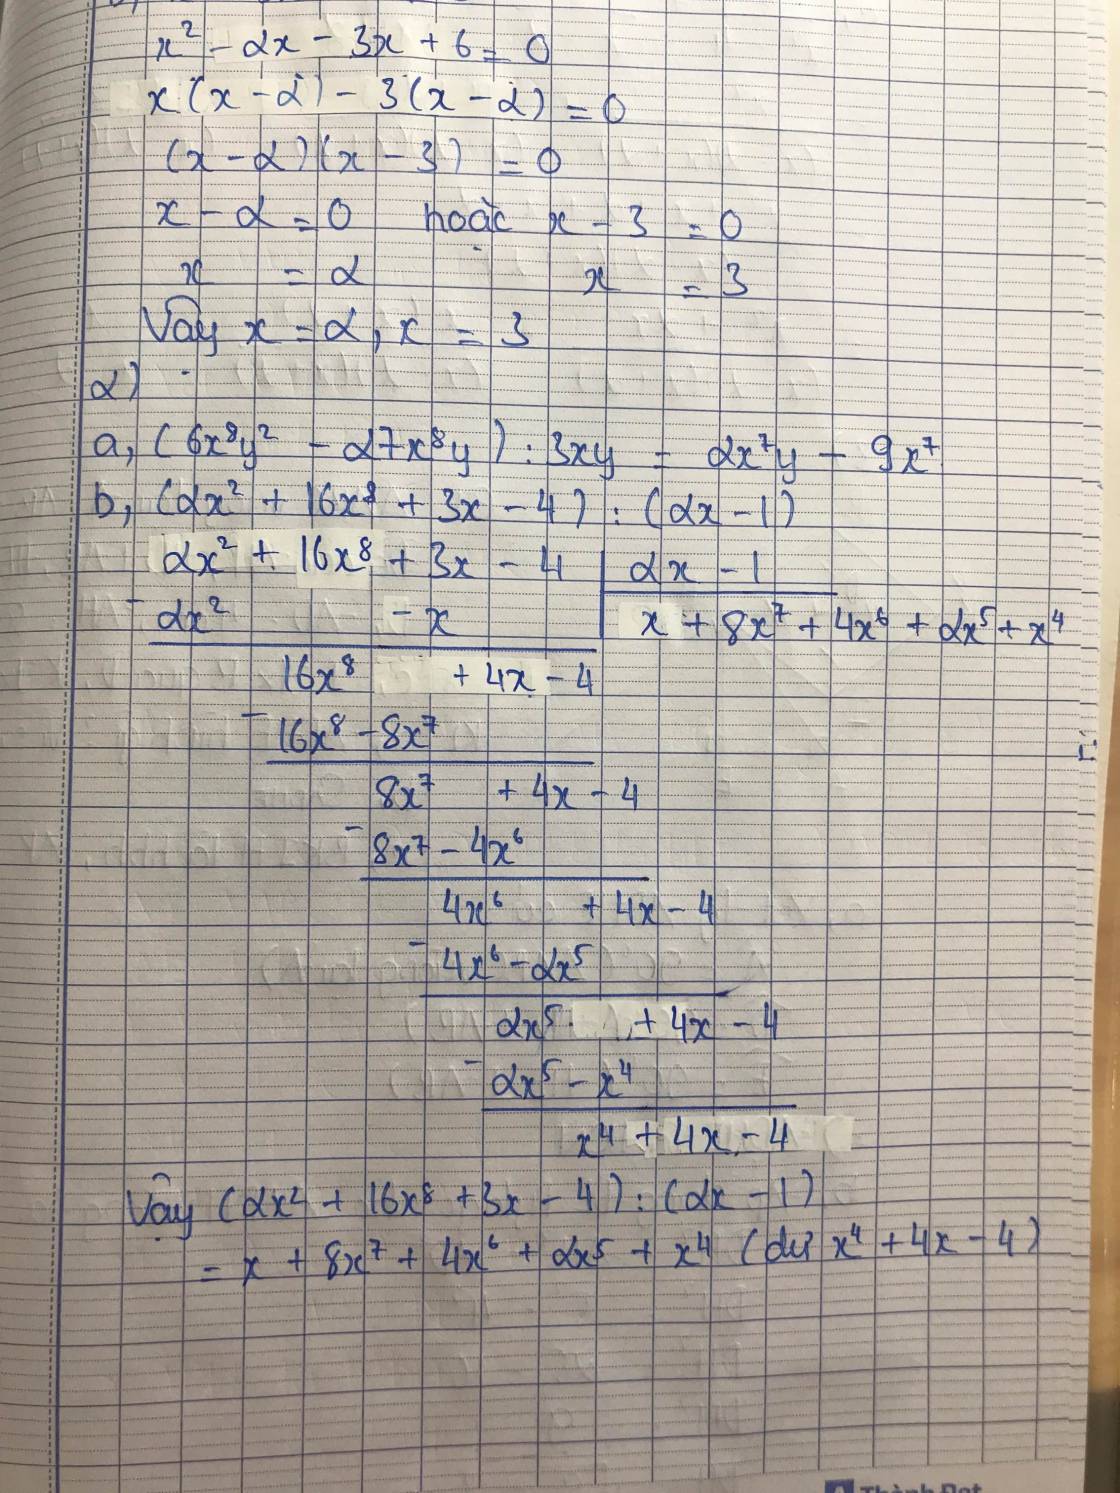 x² - 2x - 3x + 6 = 0
x(x - 2) - 3(x - 2) = 0
(x - 2)(x - 3) = 0
x - 2 = 0 hoặc x - 3 = 0
x = 2 x = 3
Vậy x = 2, x = 3
2)
a, (6x⁸y² - 27x⁸y) : 3xy = 2x⁷y - 9x⁷
b, (2x² + 16x⁸ + 3x - 4) : (2x - 1)
2x² + 16x⁸ + 3x - 4 | 2x - 1
- 2x² - x | x + 8x⁷ + 4x⁶ + 2x⁵ + x⁴
16x⁸ + 4x - 4
- 16x⁸ - 8x⁷
8x⁷ + 4x - 4
- 8x⁷ - 4x⁶
4x⁶ + 4x - 4
- 4x⁶ - 2x⁵
2x⁵ + 4x - 4
- 2x⁵ - x⁴
x⁴ + 4x - 4
Vậy (2x² + 16x⁸ + 3x - 4) : (2x - 1)
= x + 8x⁷ + 4x⁶ + 2x⁵ + x⁴ (dư x⁴ + 4x - 4)